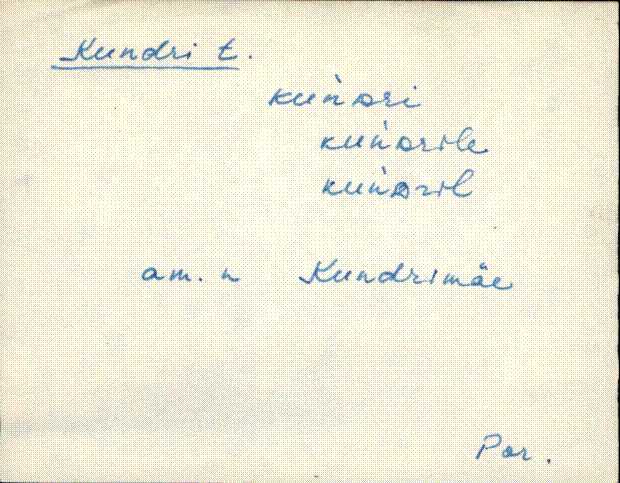 Kundri t.
kuǹᴅri
kuǹᴅrile
kuǹᴅril
am. n Kundrimäe
Por.